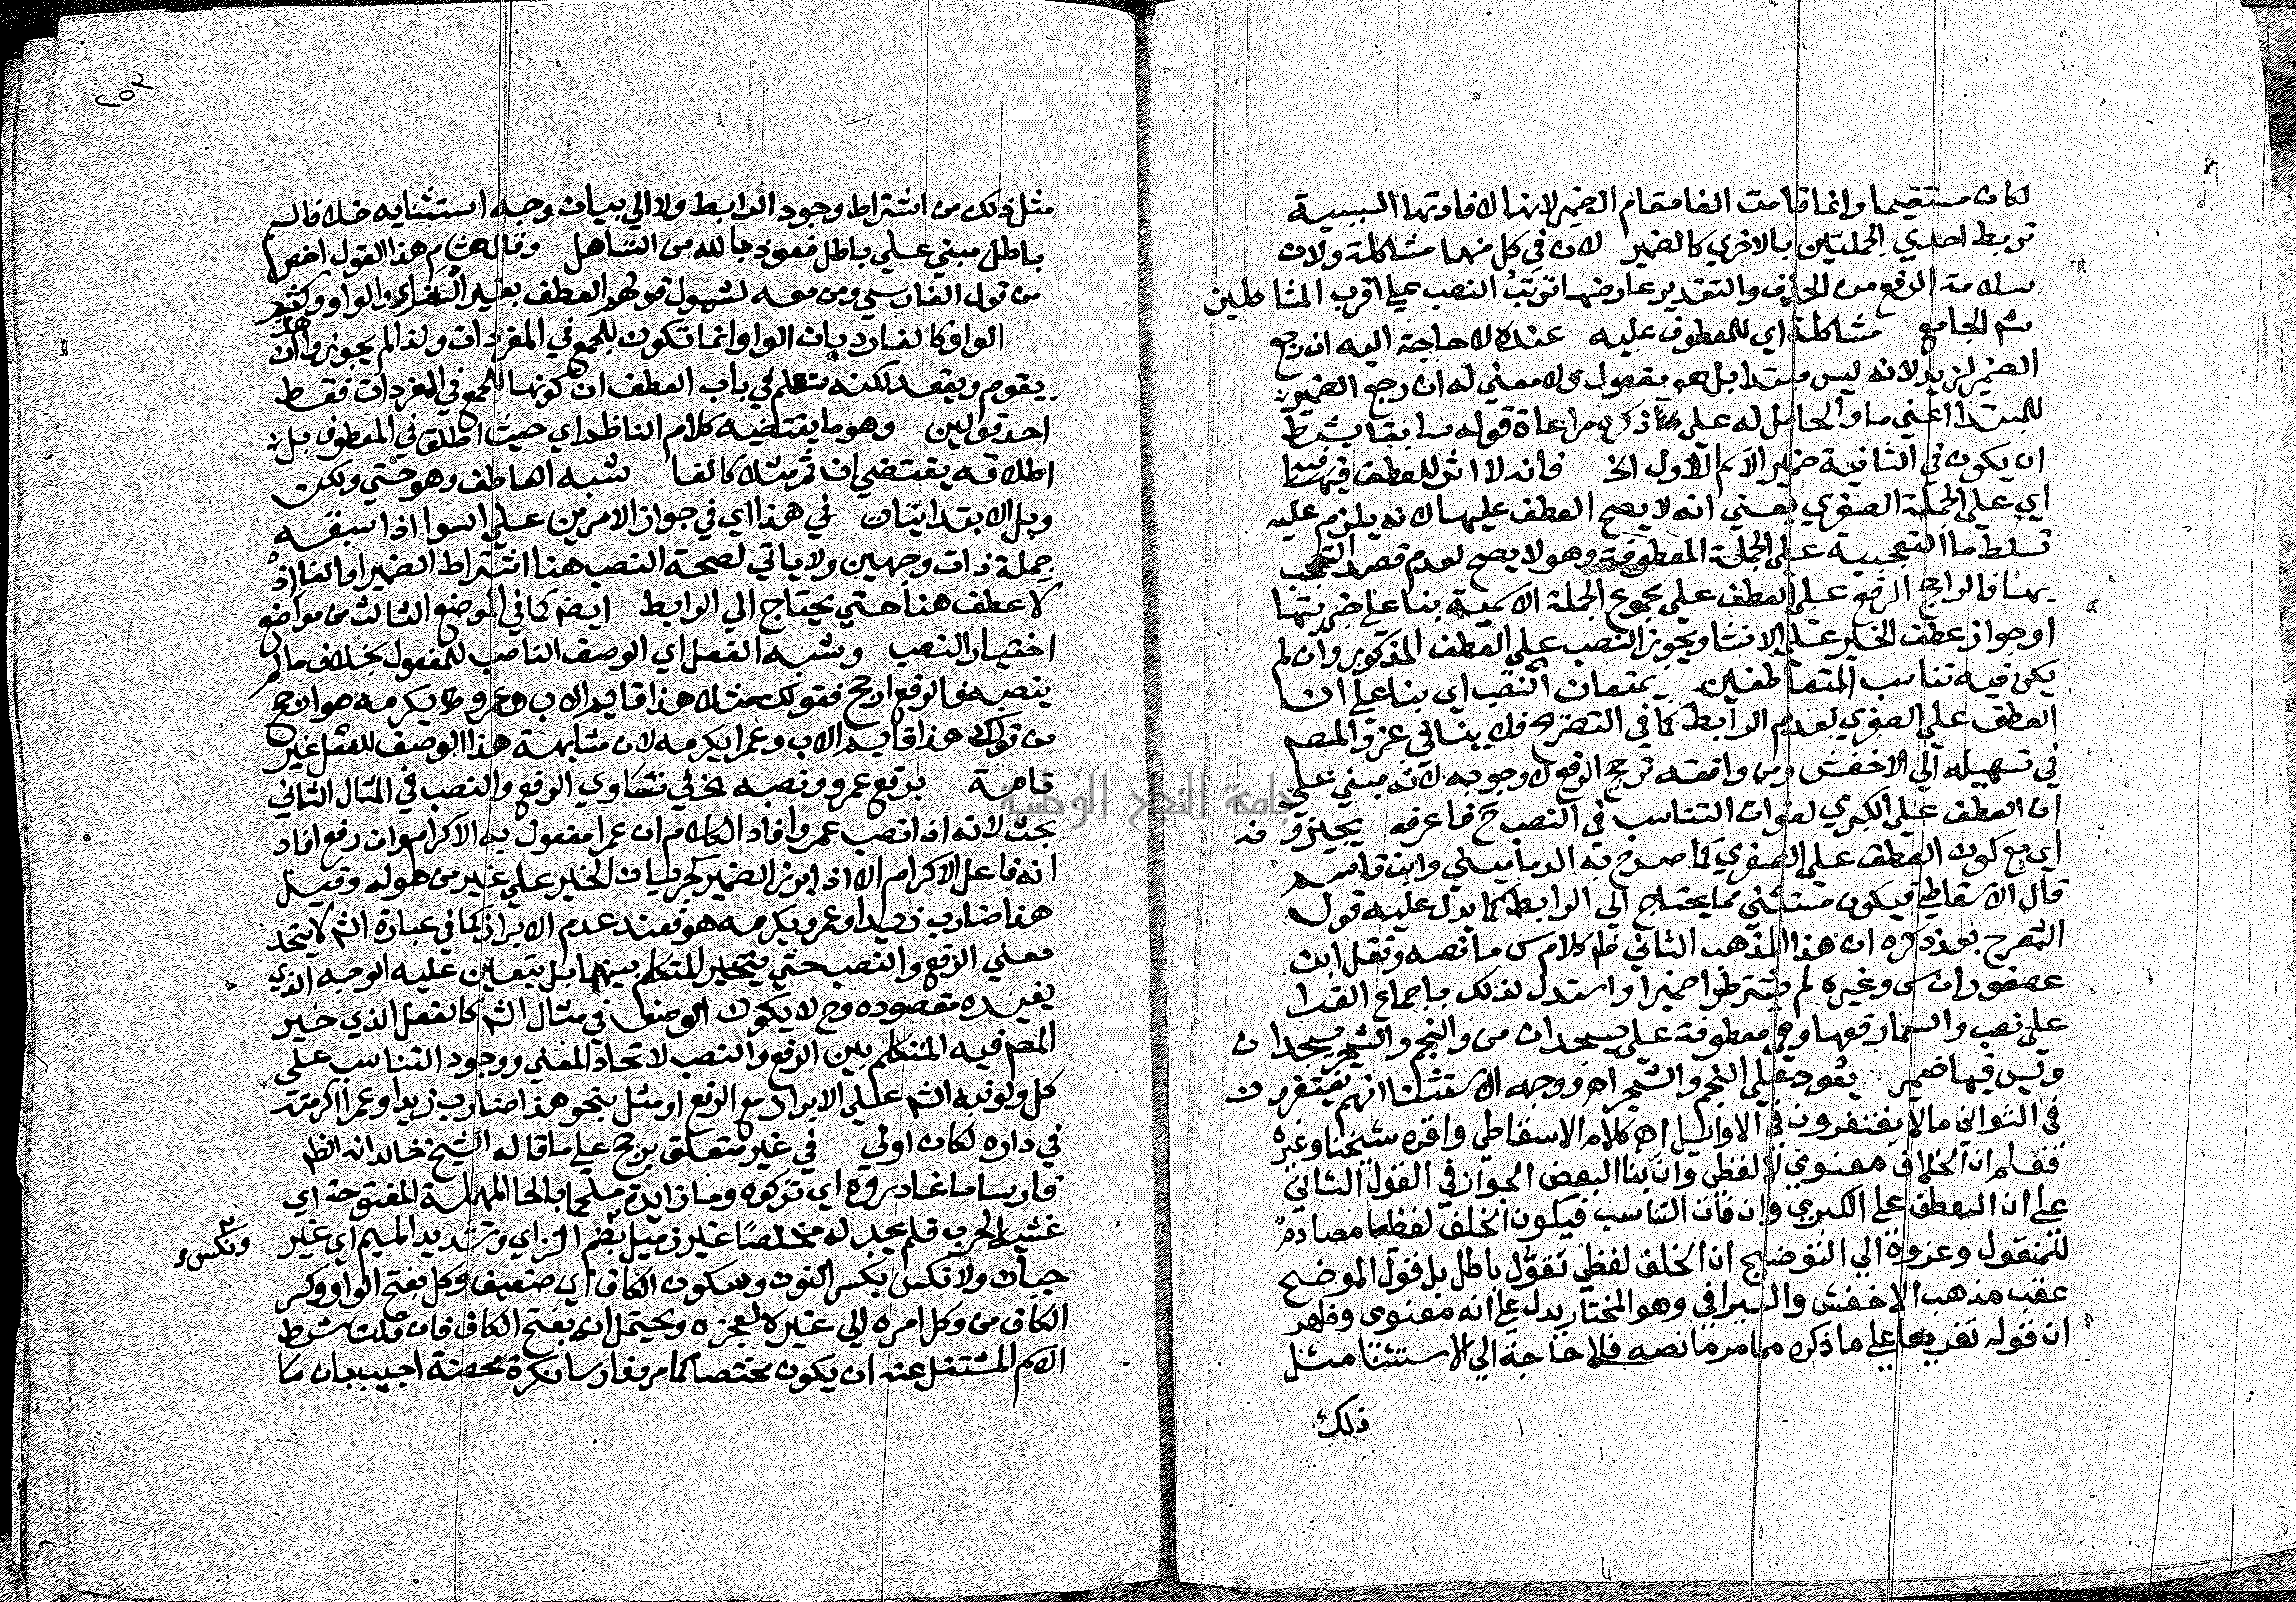 لكان مستقيما وانما قامت الفا مقام الضمير لانها لافادتها السببية
تربط احدي الجملتين بالاخري كالضمير لان في كل منهما مشاكلة ولان
سلامة الرفع من الحذف والتقدير عارضها ترتب النصب علي اقرب المشاكلين
شم الجامع مشاكلة اي للمعطوف عليه عنده لا حاجة اليه ان رجع
الضمير لزيد لانه ليس مبتدا بل هو مفعول ولا معني له ان رجع الضمير
للمبتدا اعني ما والحامل له علي ذكره مراعاة قوله سابقا بشرط
ان يكون في الثانية ضمير الاسم الاول الخ فانه لا اثر للعطف فيه
اي علي الجملة الصغري يعني انه لا يصح العطف عليها لانه يلزم عليه
تسلط ما التعجبية علي الجملة المعطوفة وهو لا يصح لعدم قصد التعجب
بها فالراجح الرفع علي العطف علي مجموع الجملة الاسمية بنا علي خبريتها
او جواز عطف الخبر علي الانشا ويجوز النصب علي العطف المذكور وان لم
يكن فيه تناسب المتعاطفين يمتعان النصب اي بنا علي ان
العطف علي الصغري لعدم الرابط كما في التصرح فلا ينافي عزو المصم
في تسهيله الي الاخفش ومن وافقه ترجح الرفع لا وجوبه لانه مبني علي
ان العطف علي الكبري لفوات التناسب في النصب ح فاعرفه يجيزونه
اي مع كون العطف علي الصغري كما صرح به الدماميني وابن قاسم
قال الاسقاطي فيكون مستثني مما يحتاج الي الرابط كما يدل عليه قول
التصرح بعد ذكره ان هذا المذهب الثاني ظم كلام س ما نصه ونقل ابن
عصفور ان س وغيره لم يشترطوا ضميرا واستدل لذلك باجماع القرا
علي نصب والسما رفعها وهي معطوفة علي يسجدان من والنجم والشجر يسجدان
وليس فيها ضمير يعود علي النجم والشجر اهو ووجه الاستثنا انهم يغتفرون
في الثواني ما لا يغتفرون في الاوايل اه كلام الاسقاطي واقره شيخنا وغيره
فعلم ان الخلاف معنوي لا لفظي وان بنا البعض الجواز في القول الثاني
علي ان العطف علي الكبري وان فات التناسب فيكون الخلف لفظيا مصادم
للمنقول وعزوه الي التوضيح ان الخلف لفظي تقول باطل بل قول الموضح
عقب مذهب الاخفش والسيرافي وهو المختار يدل علي انه معنوي وظهر
ان قوله تفريعا علي ما ذكره مما مر ما نصه فلا حاجة الي الاستثنا مثل
ذلك
٢٥٣
مثل ذلك من اشتراط وجود الرابط ولا الي بيان وجه استثنايه خلافا لسم
باطل مبني علي باطل فنعوذ بالله من التساهل وقال هشام هذا القول اخص
من قول الفارسي ومن معه لشمول قولهم العطف بغير الفا والواو وكثير
الواو كالفا رد بان الواو انما تكون للجمع في المفردات ولذا لم يجوز هذان
يقوم ويقعد لكنه ستعلم في باب العطف ان كونها للجمع في المفردات فقط
احد قولين وهو ما يقتضيه كلام الناظم اي حيث اطلق في المعطوف بل
اطلاقه يقتضي ان ثم مثلا كالفا شبه العاطف وهو حتي ولكن
وبل الابتدائيتان في هذا اي في جواز الامرين علي السوا اذا سبقه
جملة ذات وجهين ولا ياتي لصحة النصب هنا اشتراط الضمير او الفا اذ
لا عطف هنا حتي يحتاج الي الرابط ايضم كما في الموضع الثالث من مواضع
اختيار النصب وشبه الفعل اي الوصف الناصب للمفعول بخلاف ما لم
ينصبه فالرفع ارجح فقولك مثلا هذا قايم الاب وعمرو يكرمه هو ارجح
من قولك هذا قايم الاب وعمرا يكرمه لان مشابهة هذا الوصف للفعل غير
تامة برفع عمرو ونصبه بحذ في تساوي الرفع والنصب في المثال الثاني
بحث لانه اذا نصب عمرو افاد الكلام ان عمرا مفعول به الاكرام وان رفع افاد
انه فاعل الاكرام الا اذا ابرز الضمير لجريان الخبر علي غير من هو له وقيل
هذا ضارب زيدا وعمرو يكرمه هو فعند عدم الابراز كما في عبارة الشم لا يتحد
معني الرفع والنصب حتي يتخير المتكلم بينهما بل يتعين عليه الوجه الذي
يفيده مقصوده وح لا يكون الوصف في مثال الشم كالفعل الذي خير
المصم فيه المتكلم بين الرفع والنصب لاتحاد المعني ووجود التناسب علي
كل ولو نبه الشم علي الابراز مع الرفع او مثل بنحو هذا ضارب زيدا وعمرا اكرمته
في داره لكان اولي في غير متعلق برجح علي ما قاله الشيخ خالد انه الظم
فارسا ما غادروه اي تركوه وما زايدة ملحما بالحا المهملة المفتوحة اي
غشيه الحرب فلم يجد له مخلصا غير زميل بضم الزاي وتشديد الميم اي غير
ونكس
جبان ولا نكس بكسر النون وسكون الكاف اي ضعيف وكل بفتح الواو وكسر
الكاف من وكل امره الي غيره لعجزه ويحتمل انه بفتح الكاف فان قلت شرط
الاسم المشتغل عنه ان يكون مختصا كما مر وفارسا نكرة محضة اجيب بان ما